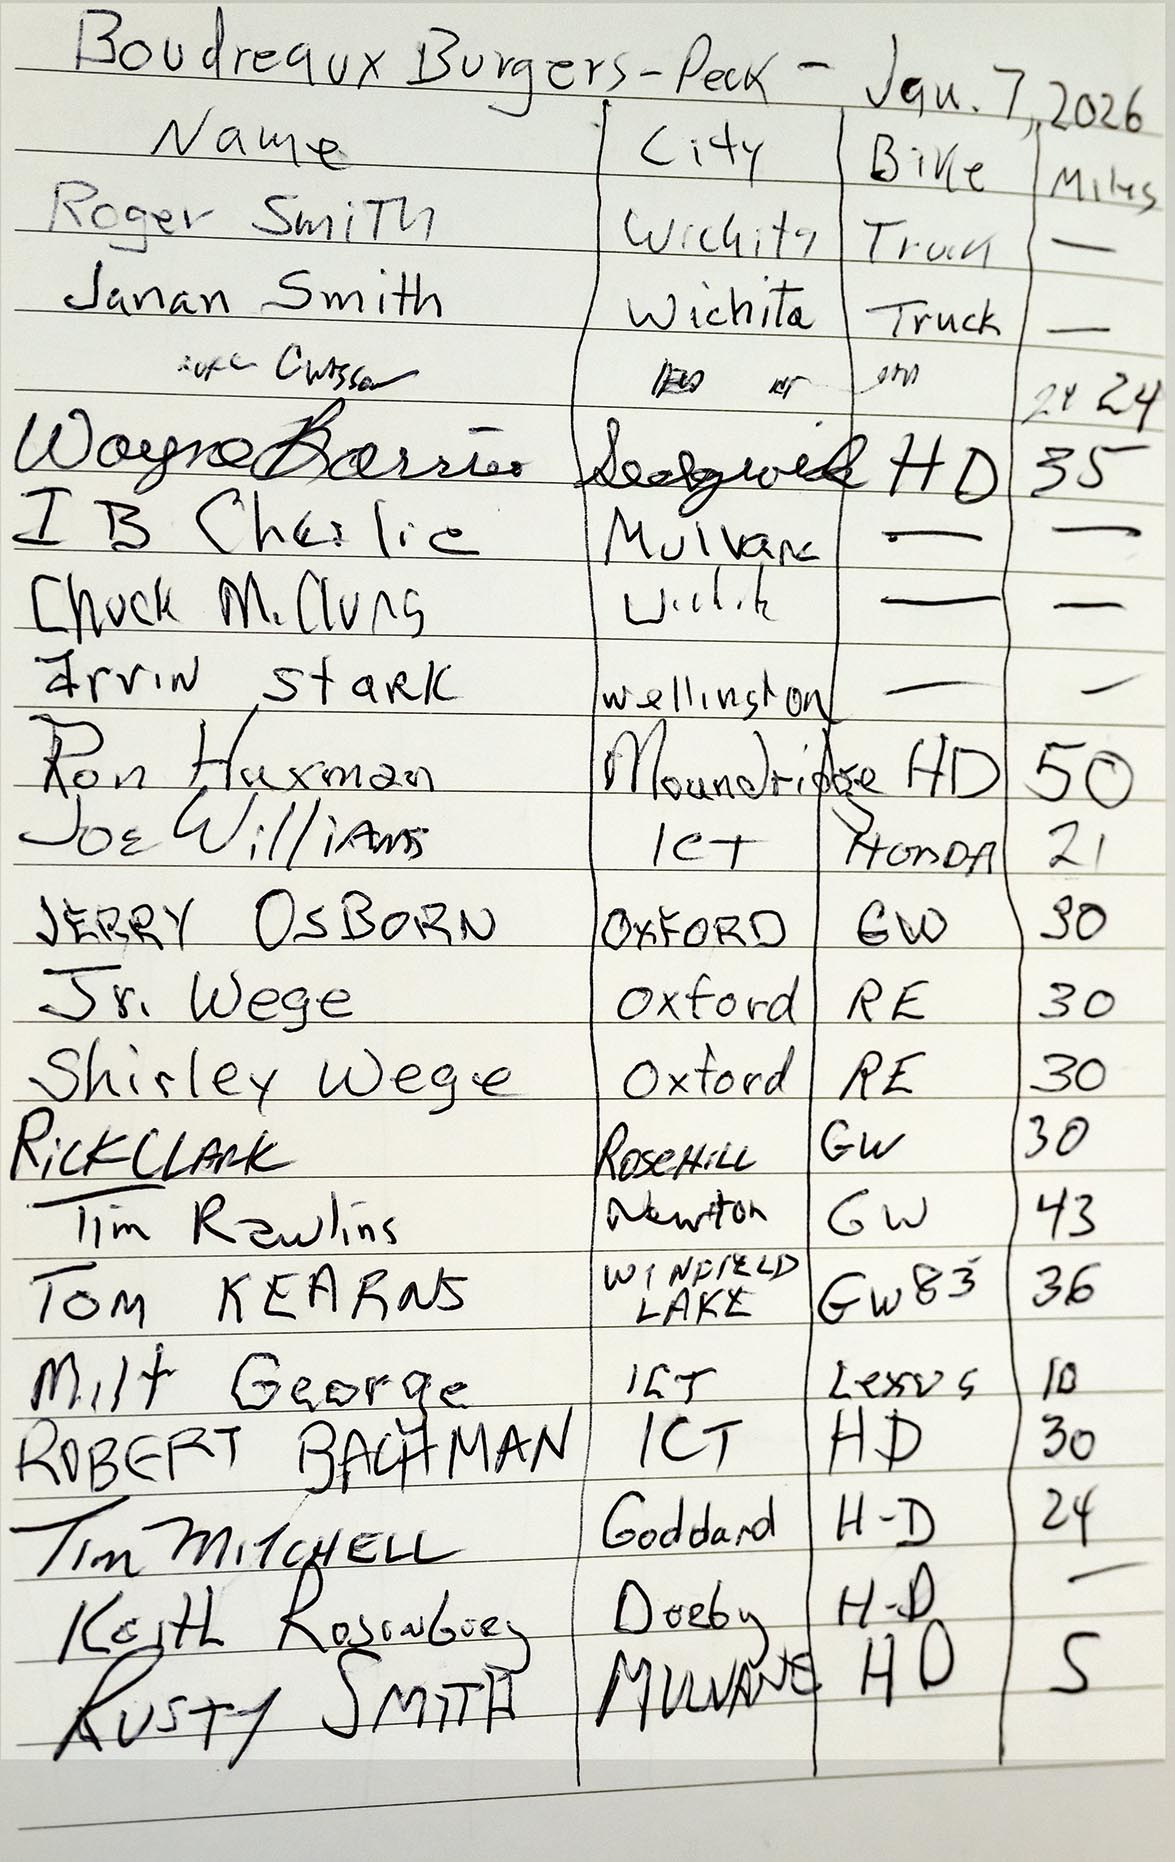 Boudreaux Burgers - Peck - Jan. 7, 2026
Name City Bike Miles
Roger Smith Wichita Truck —
Janan Smith Wichita Truck —
24 24
Wayne Barrier Sedgwick HD 35
I B Charlie Mulvane — —
Chuck McClung Wichita — —
Arvin Stark Wellington — —
Ron Huxman Moundridge HD 50
Joe Williams ICT HONDA 21
JERRY OSBORN OXFORD GW 30
Jr. Wege Oxford RE 30
Shirley Wege Oxford RE 30
RICK CLARK ROSEHILL GW 30
Tim Rawlins Newton GW 43
TOM KEARNS WINFIELD LAKE GW 83 36
Milt George ICT Lexus 10
ROBERT BACHMAN ICT HD 30
Tim MITCHELL Goddard H-D 24
Keith Rosenberg Derby H-D —
RUSTY SMITH MULVANE HD 5